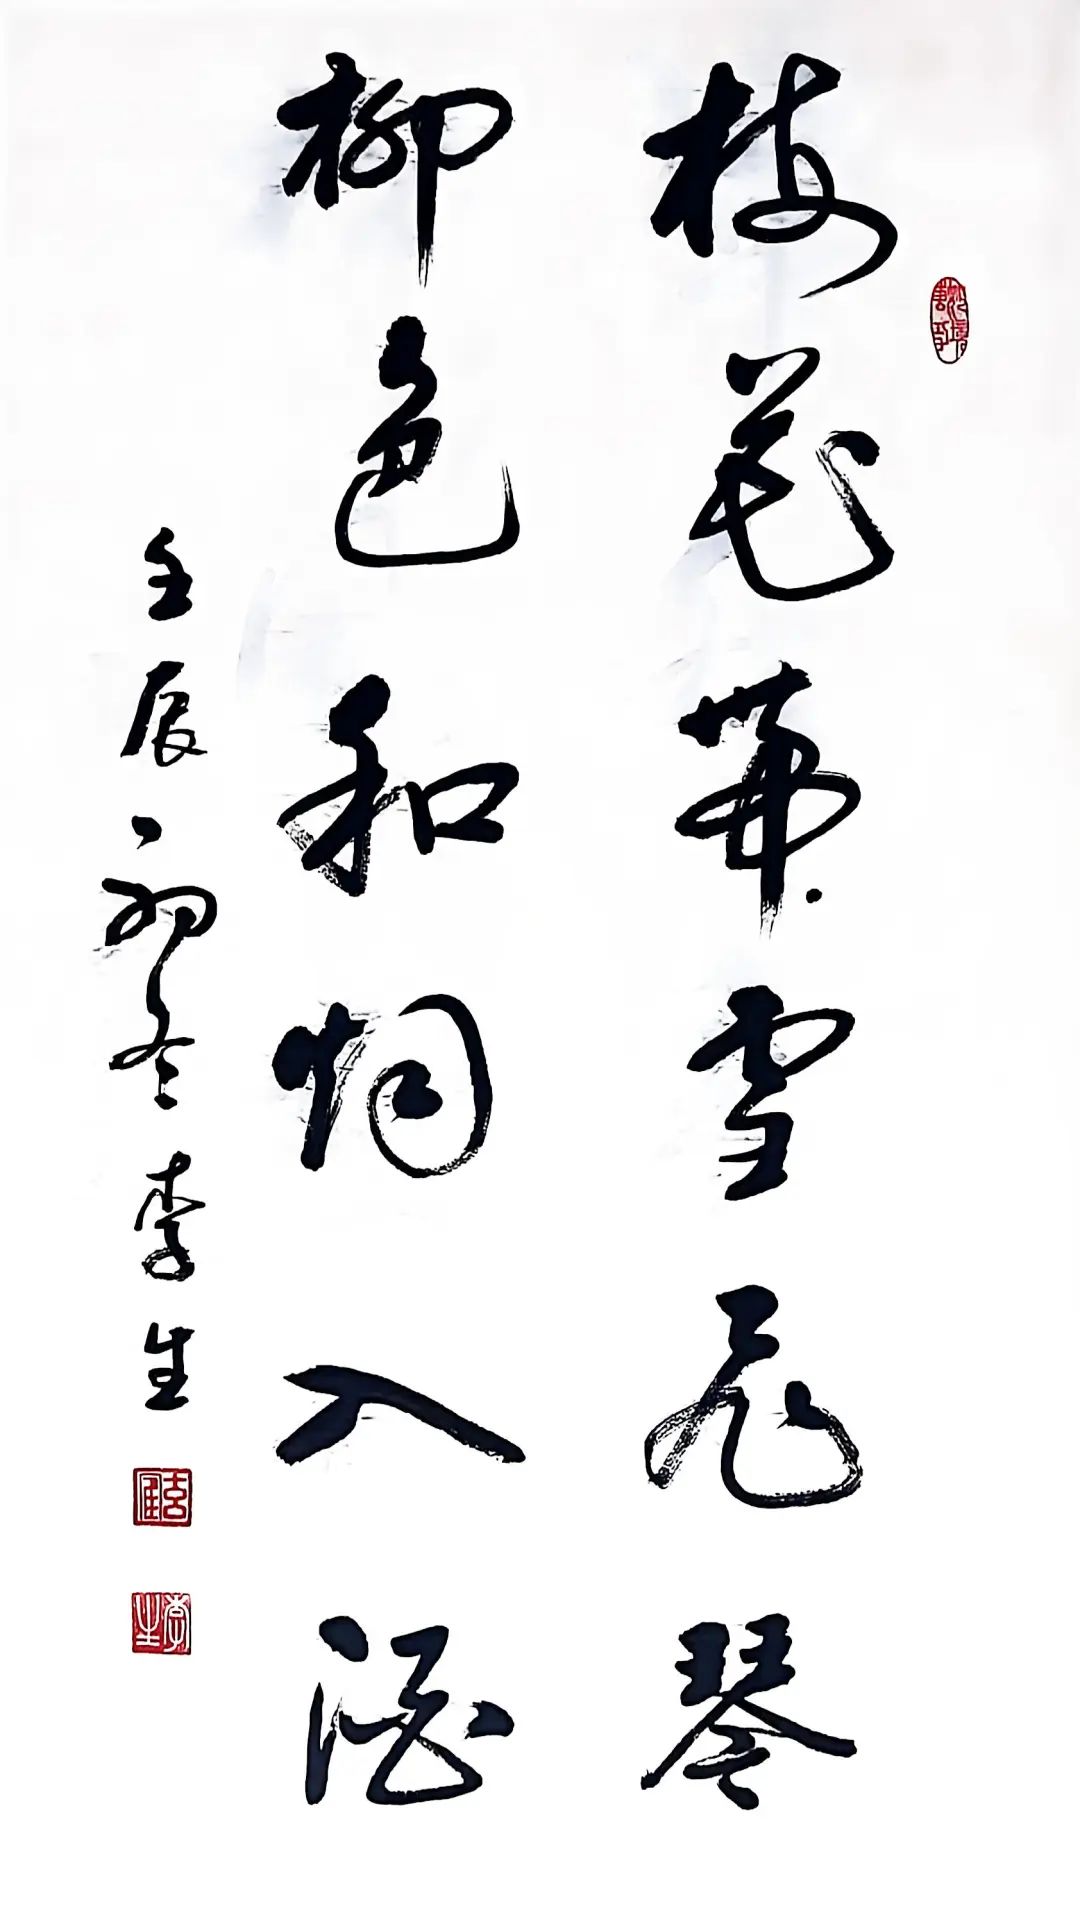 梅花带雪飞琴
柳色和烟入酒
壬辰初冬李生
李生